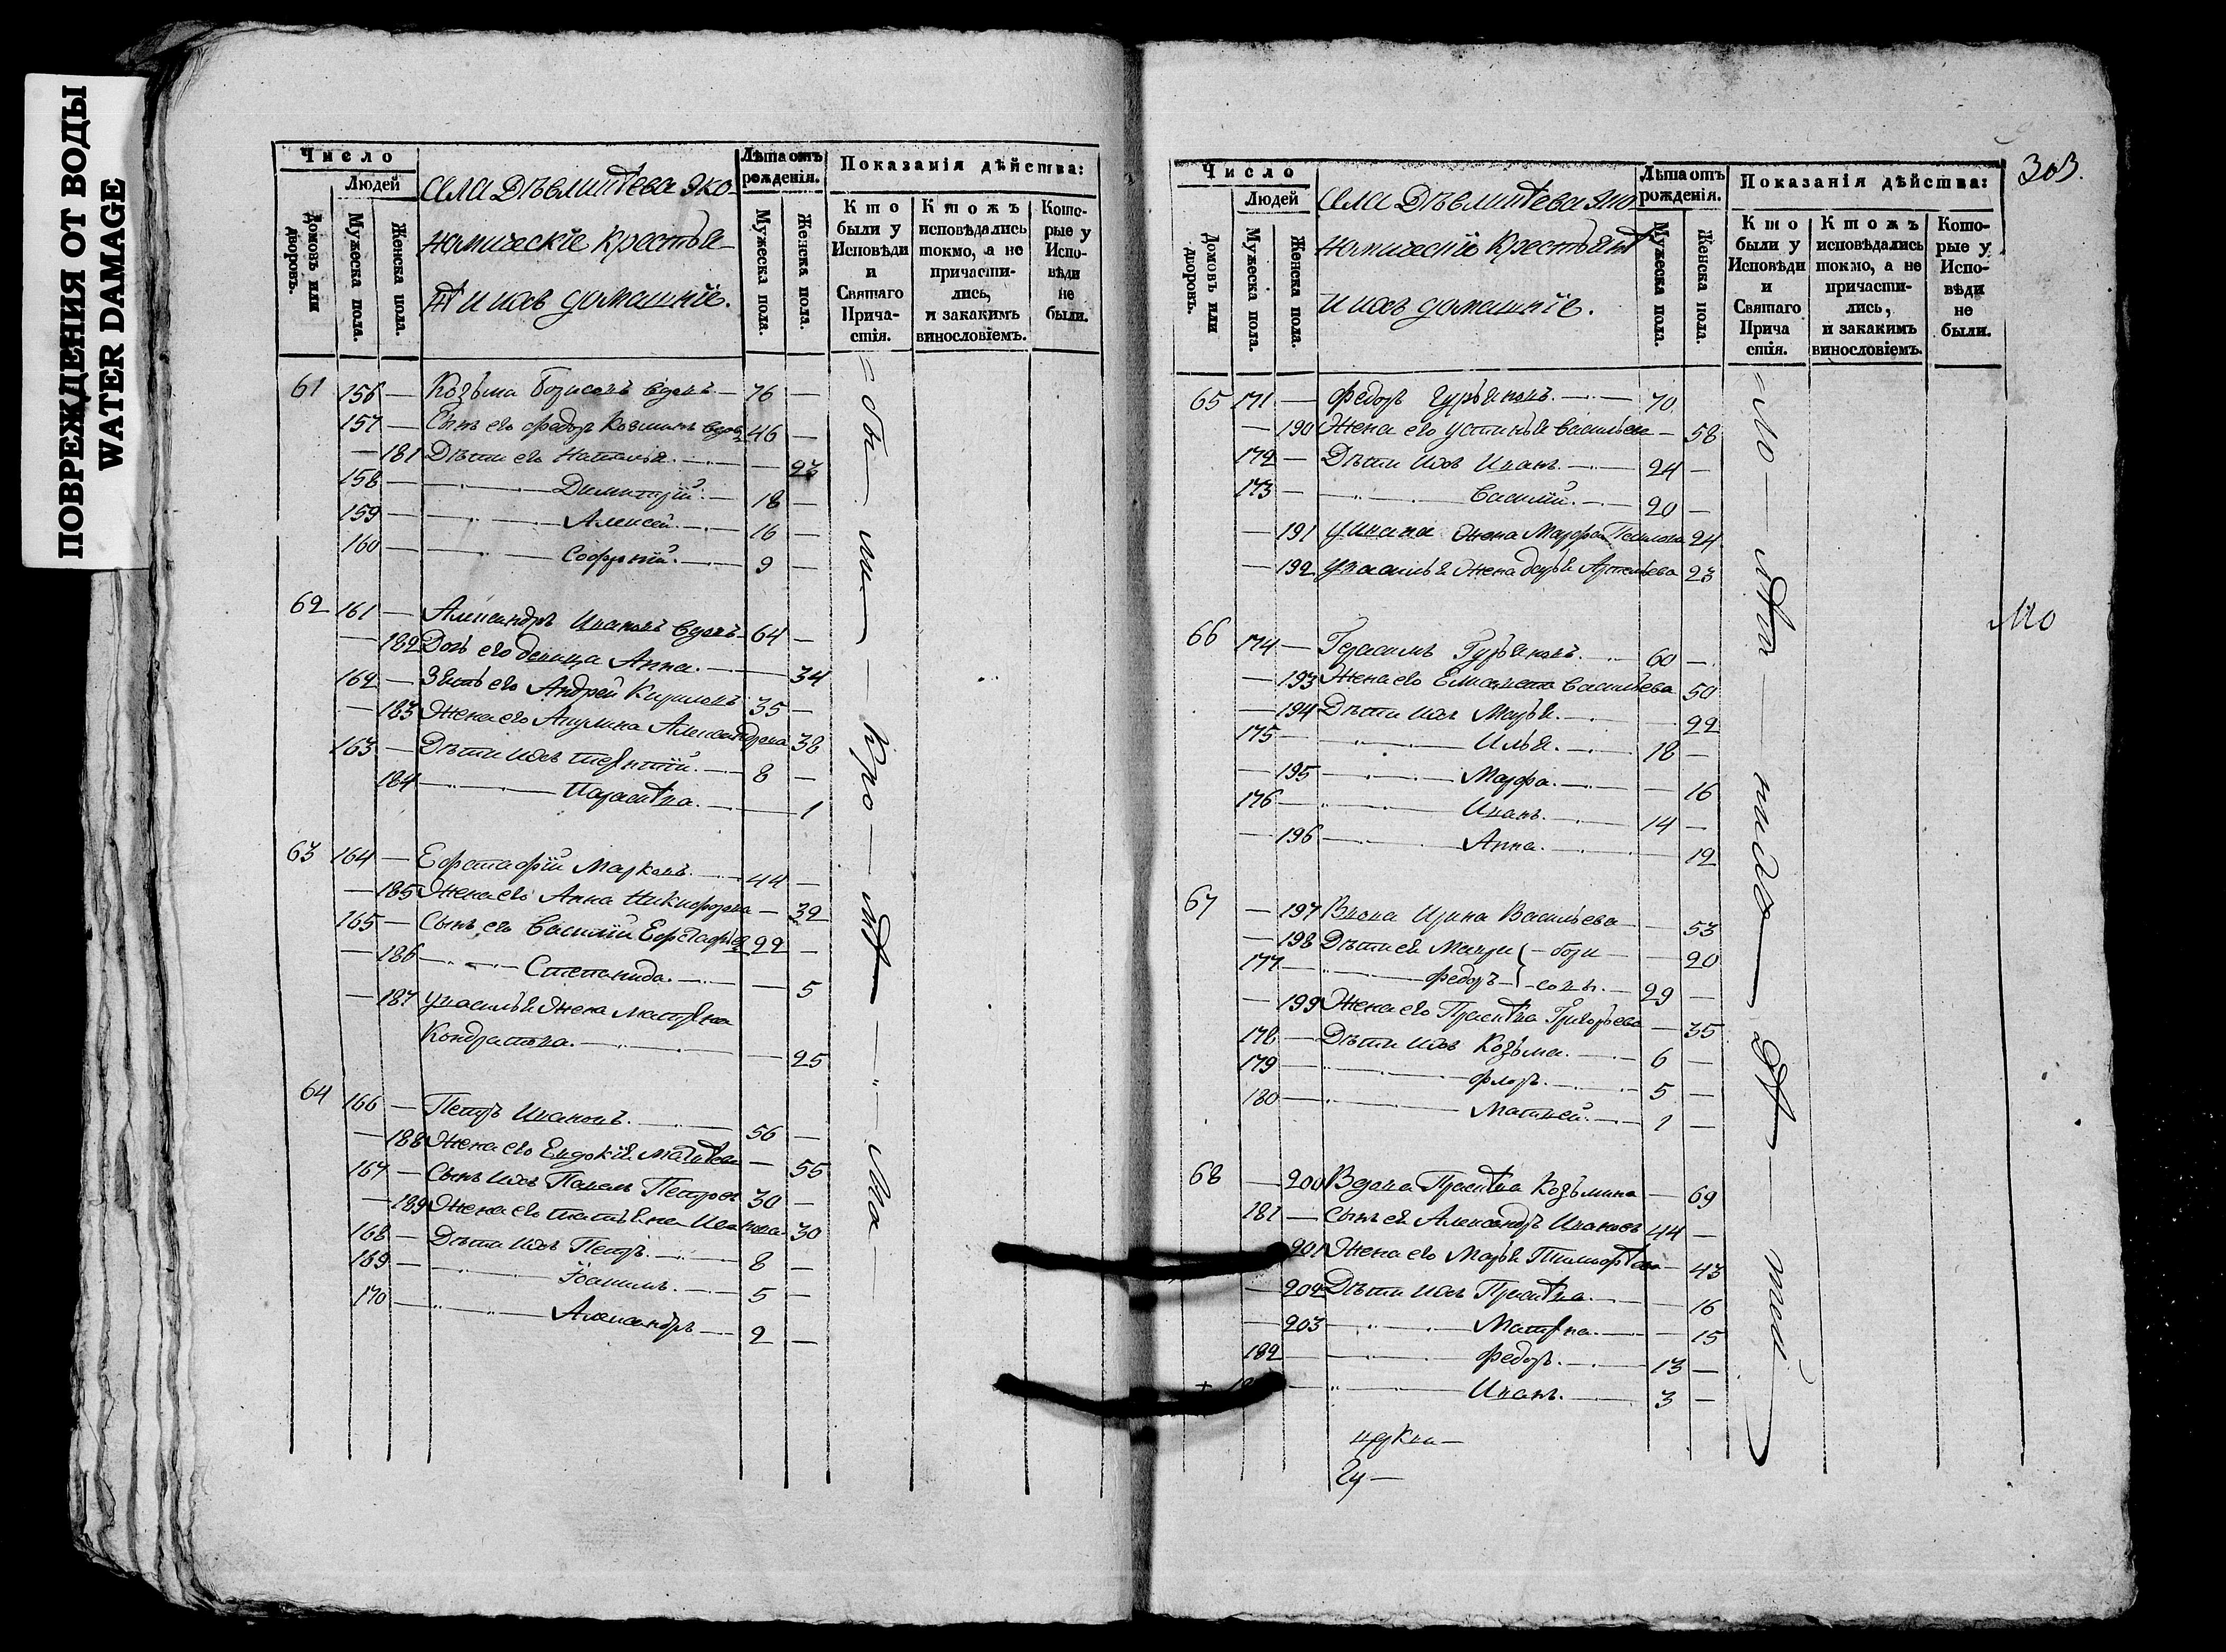 ПОВРЕЖДЕНИЯ ОТ ВОДЫ
WATER DAMAGE
Число
Людей
Домовъ или дворовъ.
Мужеска пола.
Женска пола.
села Дѣвлитѣева эко-
номическіе крестья-
нѣ и ихъ домашніе.
Лѣта отъ рожденія.
Мужеска пола.
Женска пола.
Показанія дѣйства:
Кто были у Исповѣди и Святаго Прича-стія.
Ктожъ исповѣдались токмо, а не причасти-лись, и закакимъ винословіемъ.
Кото-рые у Испо-вѣди не были.
61 156 — Козьма Борисовъ вдовъ — 76 —
157 — Сынъ его Федоръ Козминъ вдовъ 46 —
— 181 Дѣти его Наталья. — 23
158 — Димитрій. — 18 —
159 — Алексей. — 16 —
160 — Софроній. — 9 —
62 161 — Александръ Ивановъ вдовъ — 64 —
— 182 Дочь его девица Анна. — 34
162 — Зять его Андрей Кириловъ 35 —
— 183 Жена его Акулина Александрова 38
163 — Дѣти ихъ Терентій. — 8 —
184 — Парасковья. — 1
63 164 — Ефстафій Марковъ. — 44 —
— 185 Жена его Анна Никифорова — 39
165 — Сынъ его Василій Ефстафьев 22 —
— 186 — Степанида. — 5
— 187 у Василья жена Матрена
Кондратова. — 25
64 166 — Петръ Ивановъ. — 56 —
— 188 Жена его Евдокія Матвѣева — 55
167 — Сынъ ихъ Павелъ Петровъ 30 —
— 189 Жена его Татьяна Иванова 30
168 — Дѣти ихъ Петръ. — 8 —
169 — Іоакимъ. — 5 —
170 — Александръ — 2 —
— бы — ли — у — про — — — ма —
303.
Число
Людей
Домовъ или дворовъ.
Мужеска пола.
Женска пола.
села Дѣвлитѣева эко
номическіе крестьянѣ
и ихъ домашніе.
Лѣта отъ рожденія.
Мужеска пола.
Женска пола.
Показанія дѣйства:
Кто были у Исповѣди и Святаго Прича стія.
Ктожъ исповѣдались токмо, а не причасти-лись, и закакимъ винословіемъ.
Кото-рые у Испо-вѣди не были.
65 171 — Федоръ Гурьяновъ. — 70
— 190 Жена его Устинья Васильева — 58
172 — Дѣти ихъ Иванъ. — 24 —
173 — Василій. — 20 —
— 191 у Ивана жена Марфа 24
— 192 у Василья жена Дарья Артемьева 23
66 174 — Герасимъ Гурьяновъ. — 60 —
— 193 Жена его Елисавета Васильева 50
— 194 Дѣти ихъ Марья. — 22
175 — Илья. — 18 —
— 195 — Марфа. — 16
176 — Иванъ. — 14 —
— 196 — Анна. — 12
67 — 197 Вдова Ирина Васильева — 53
— 198 Дѣти ея — бори — 20
177 — Федоръ — совы. — 29 —
— 199 Жена его Прасковья Григорьева — 35
178 — Дѣти ихъ Козьма. — 6 —
179 — Флоръ. — 5 —
180 — Матвей. — 1 —
68 — 200 Вдова Прасковья Козьмина — 69
181 — Сынъ ея Александръ Ивановъ 44 —
201 Жена его Марья Тимофѣева — 43
— 202 Дѣти ихъ Прасковья. — 16
— 203 — Матрена. — 15
182 — Федоръ. — 13 —
— Иванъ. — 3 —
мо